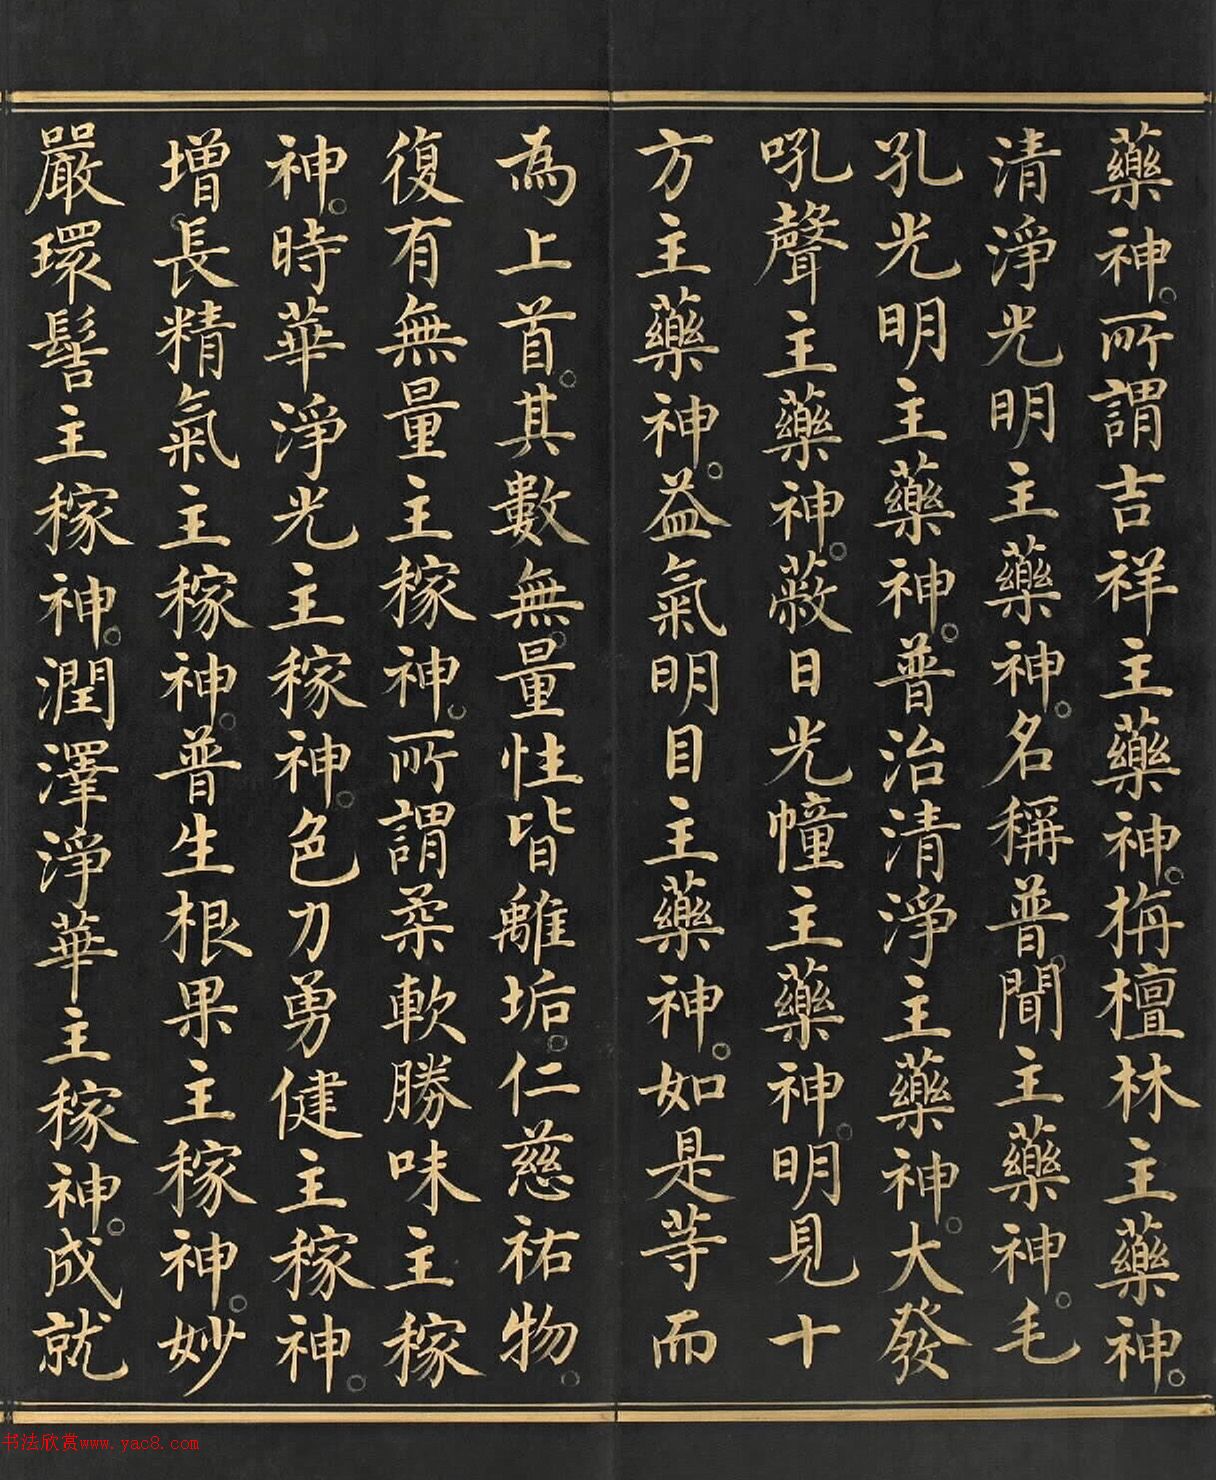 藥神。所謂吉祥主藥神。栴檀林主藥神。
清淨光明主藥神。名稱普聞主藥神。毛
孔光明主藥神。普治清淨主藥神。大發
吼聲主藥神。蔽日光幢主藥神。明見十
方主藥神。益氣明目主藥神。如是等而
為上首。其數無量。性皆離垢。仁慈祐物。
復有無量主稼神。所謂柔軟勝味主稼
神。時華淨光主稼神。色力勇健主稼神。
增長精氣主稼神。普生根果主稼神。妙
嚴環髻主稼神。潤澤淨華主稼神。成就
书法欣赏www.yac8.com